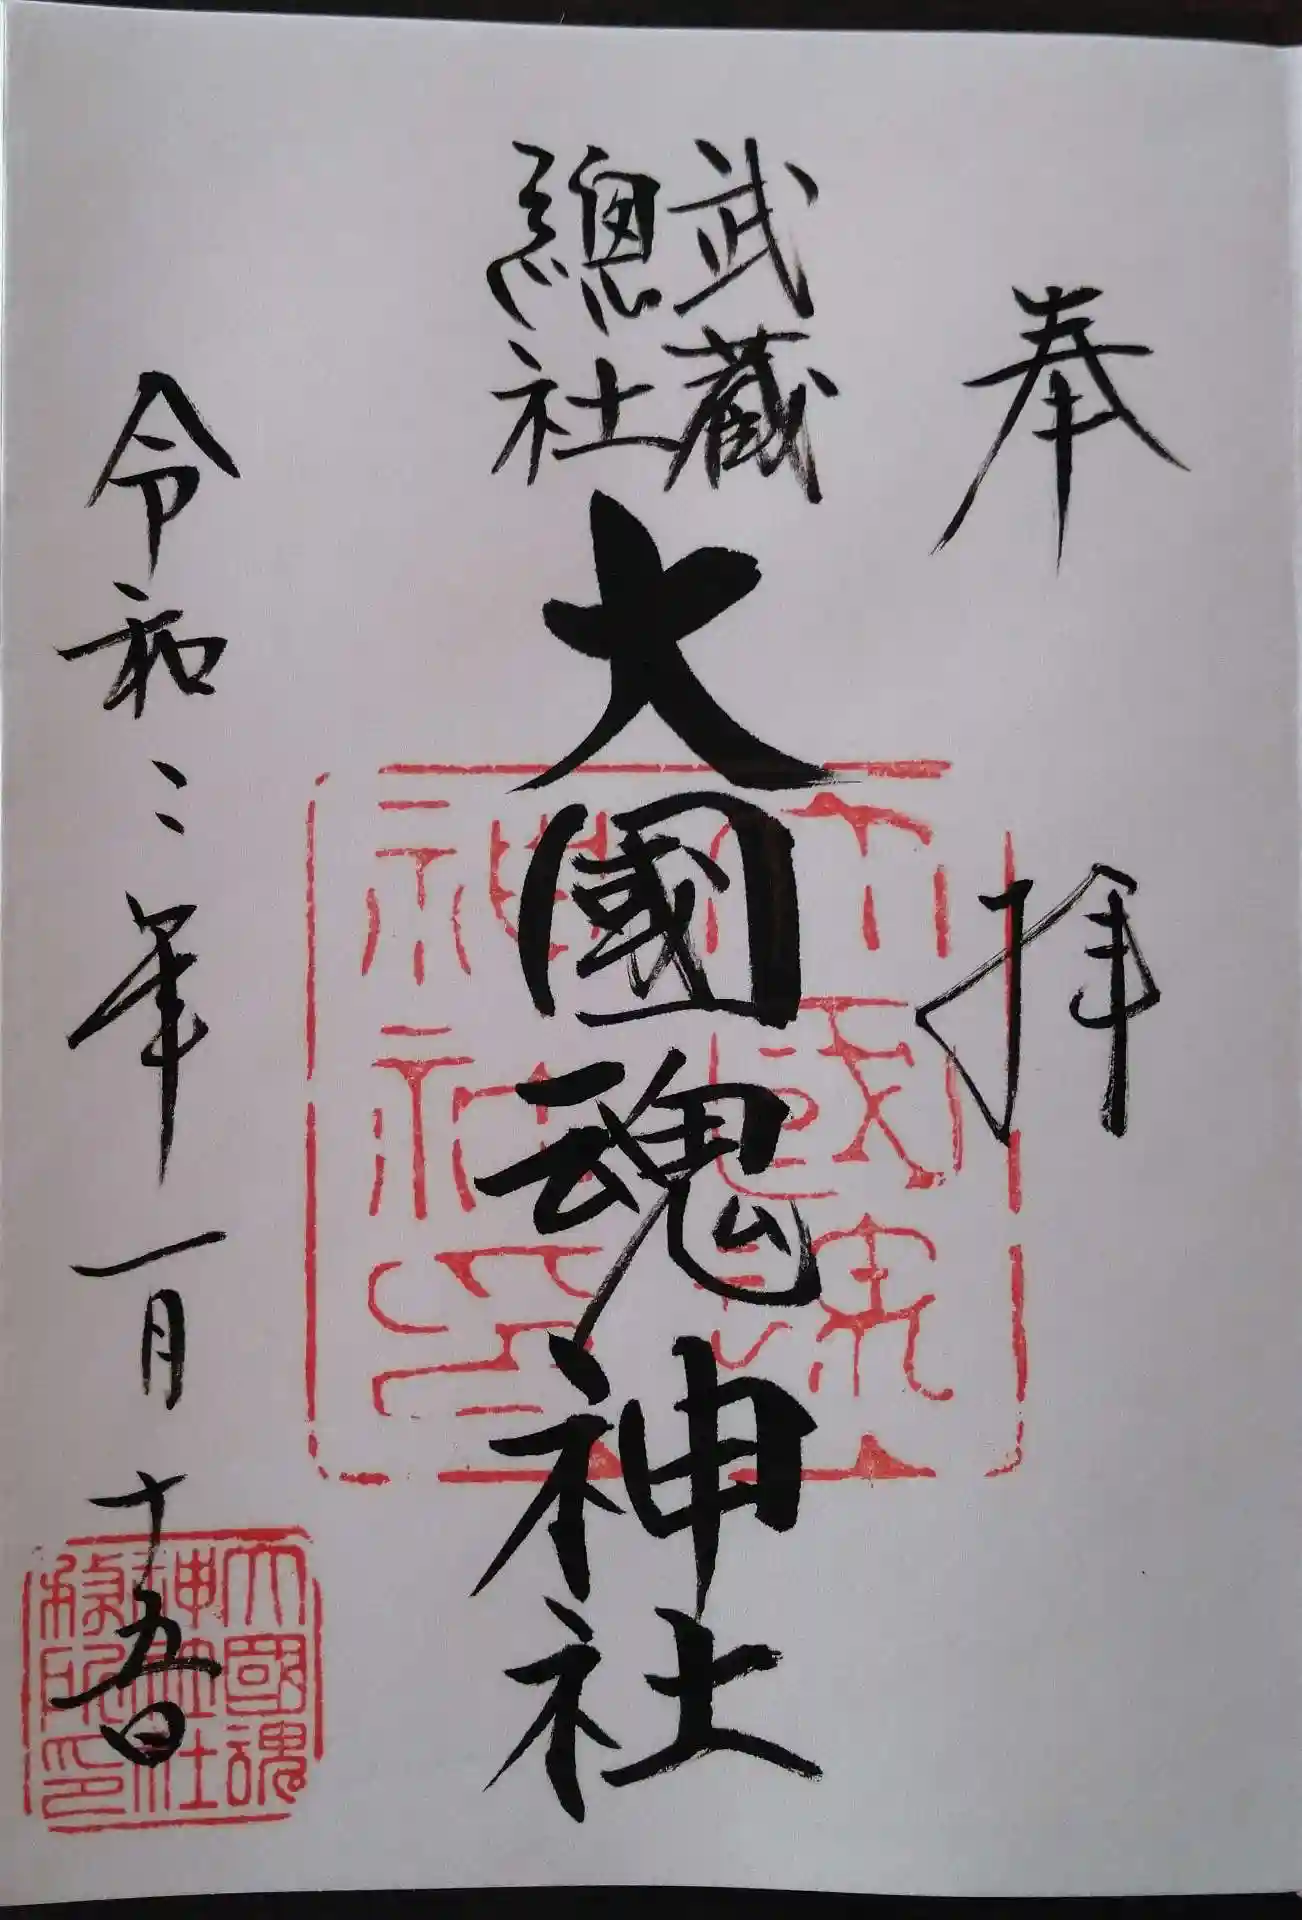 奉拝
武蔵
總社
大國魂神社
令和二年一月十五日
大國魂神社印
大國魂
神社社
務所印